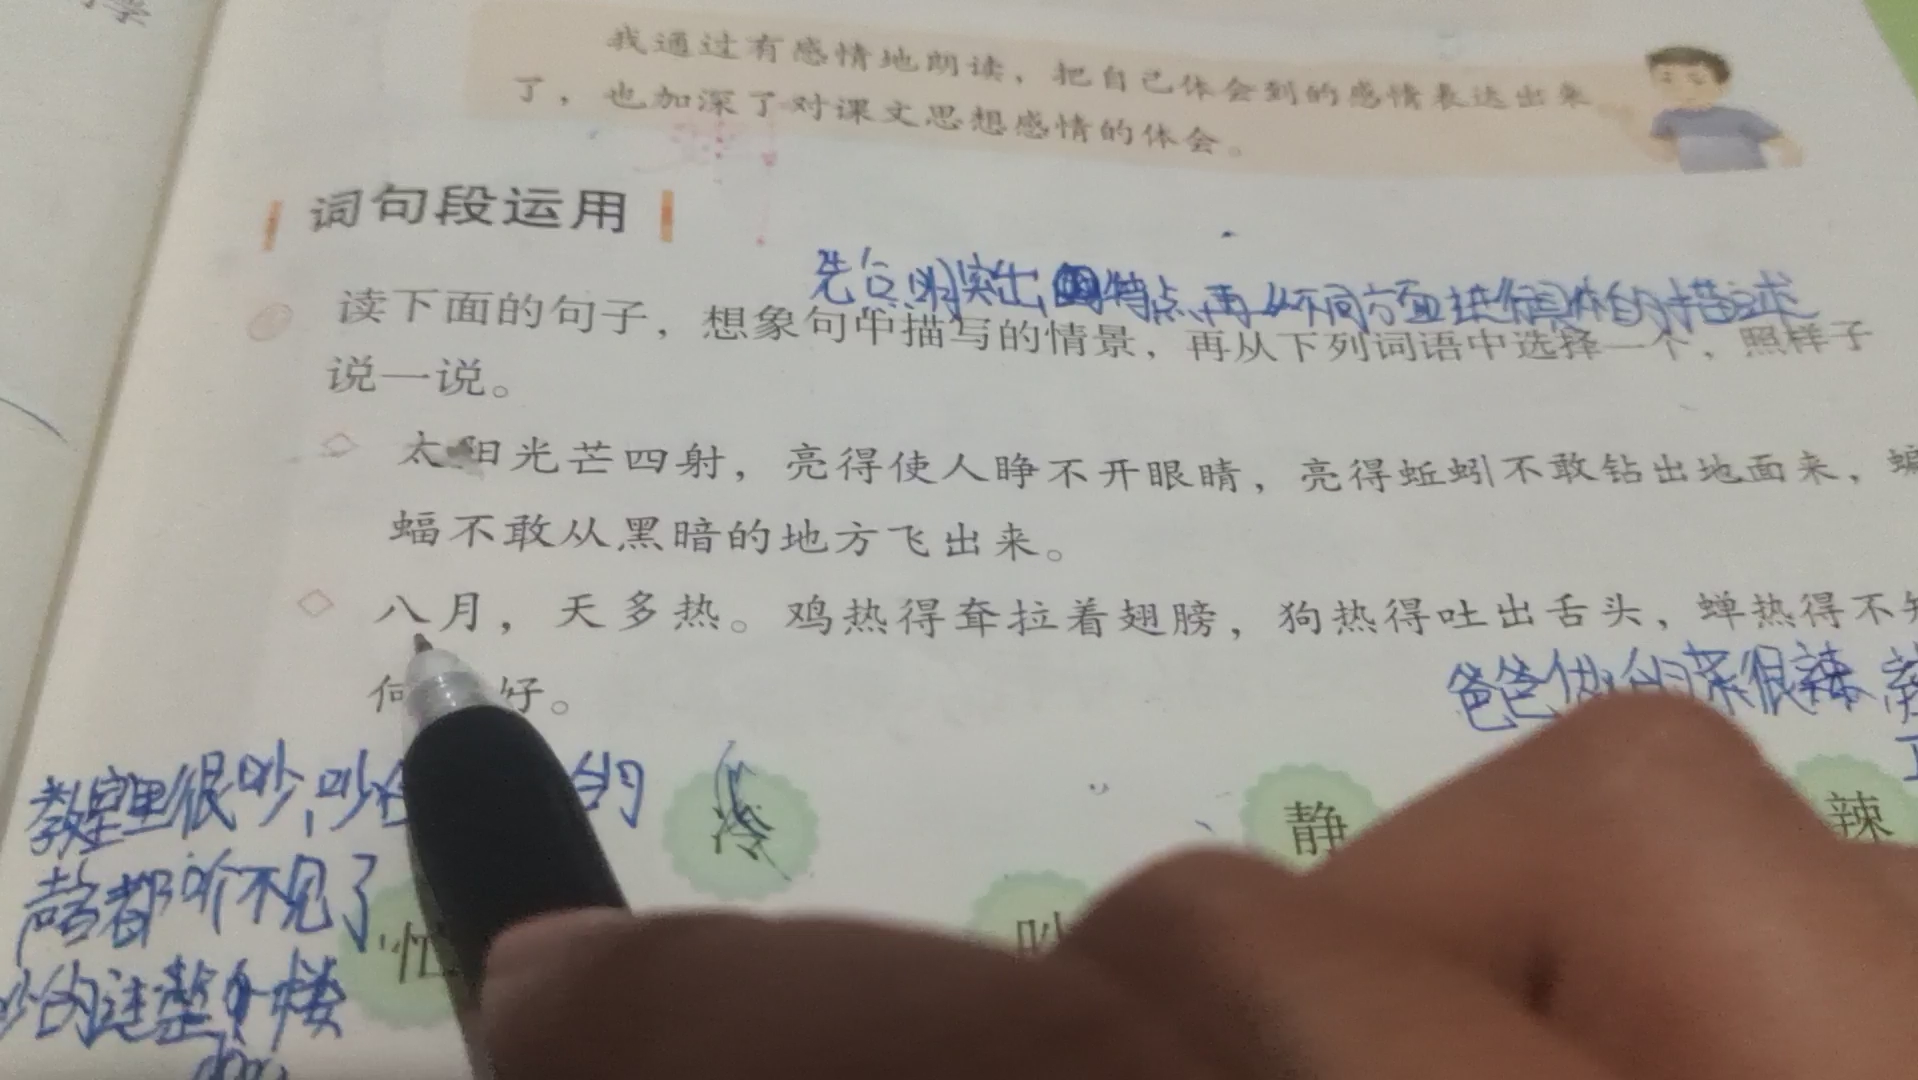 我通过有感情地朗读，把自己体会到的感情表达出来
了，也加深了对课文思想感情的体会。
词句段运用
先点明突出特点，再从不同方面进行具体的描述
读下面的句子，想象句中描写的情景，再从下列词语中选择一个，照样子
说一说。
太阳光芒四射，亮得使人睁不开眼睛，亮得蚯蚓不敢钻出地面来，蝙
蝠不敢从黑暗的地方飞出来。
八月，天多热。鸡热得耷拉着翅膀，狗热得吐出舌头，蝉热得不知
何 好。
爸爸做的菜很辣
教室里很吵，吵 的
啥都听不见了
吵的连整个楼
冷
静
辣
忙
吵